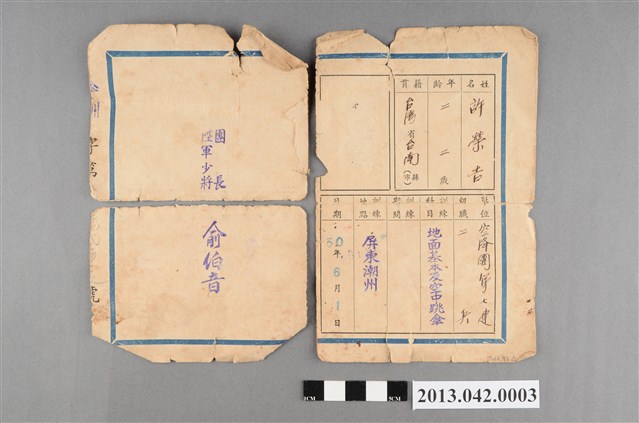 姓名
許榮吉
年齡
二二歲
籍貫
台灣省台南縣(市)
單位
空降團第七連
級職
二兵
訓練科目
地面基本及空中跳傘
訓練期間
訓練地點
屏東潮州
日期
50年6月1日
團長
陸軍少將
俞伯音
字第
號
2013.042.0003
1CM
5CM